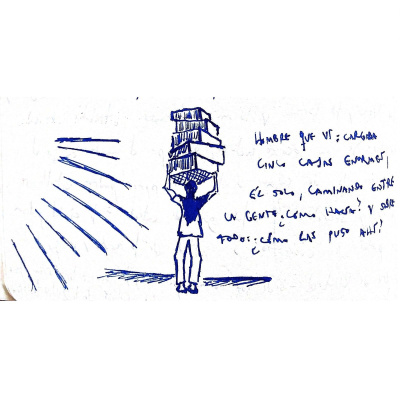 HOMBRE QUE VI: CARGABA
CINCO CAJAS ENORMES,
ÉL SOLO, CAMINANDO ENTRE
LA GENTE. ¿CÓMO HACÍA? Y SOBRE
TODO: ¿CÓMO LAS PUSO AHÍ?